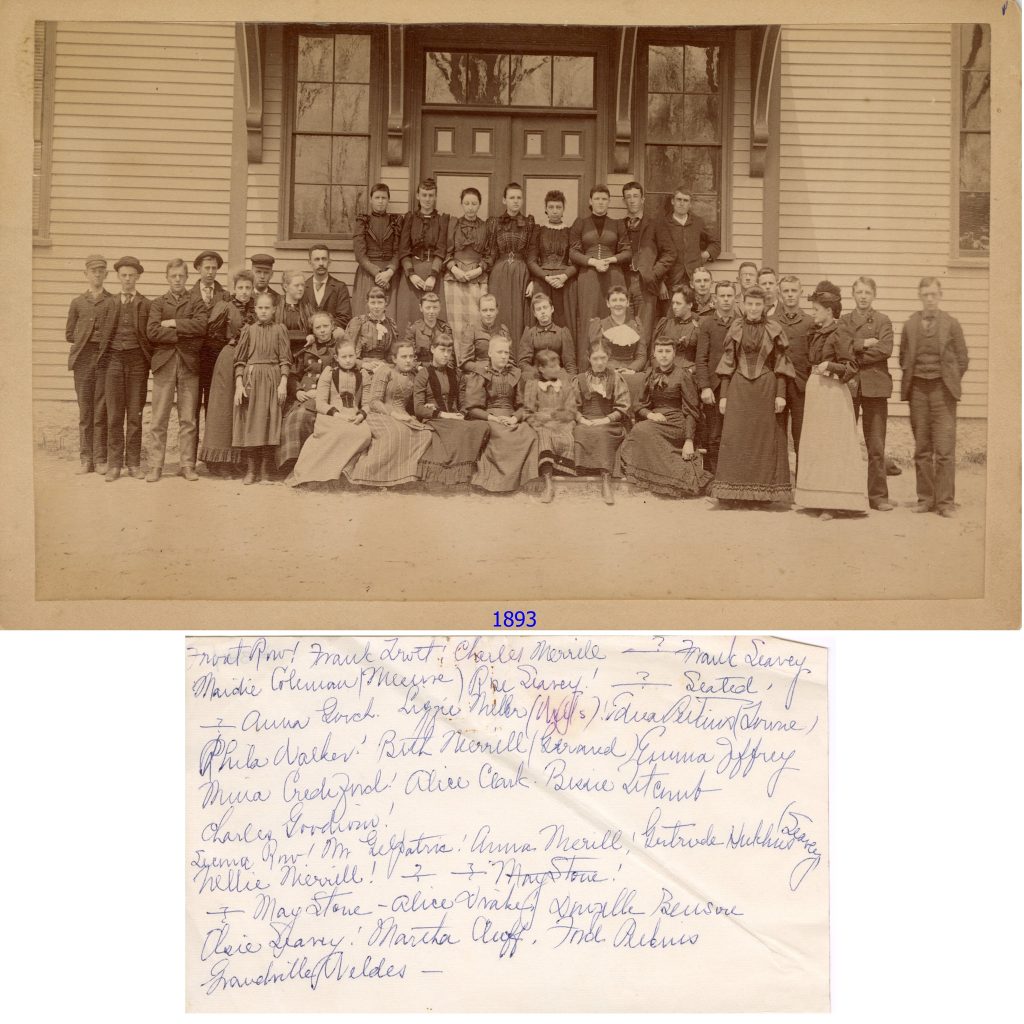 1893
Front Row! Frank Trott! Charles Merrill — ? — Frank Seavey
Maidie Coleman (Meserve) Rose Seavey! — ? — Seated,
— ? Anna Gooch. Lizzie Miller (Wells)! Edna Perkins
Phila Walker! Beth Merrill (Durand) Emma Jeffrey
Mina Crediford! Alice Clark. Bessie Titcomb
Charles Goodwin!
Row! Mr Gilpatric! Anna Merrill, Gertrude (Seavey)
Nellie Merrill! — ? — ? May Stone!
— ? May Stone — Alice Drake! Benson
Elsie Seavey! Martha Cluff. Ford Perkins
Wildes —